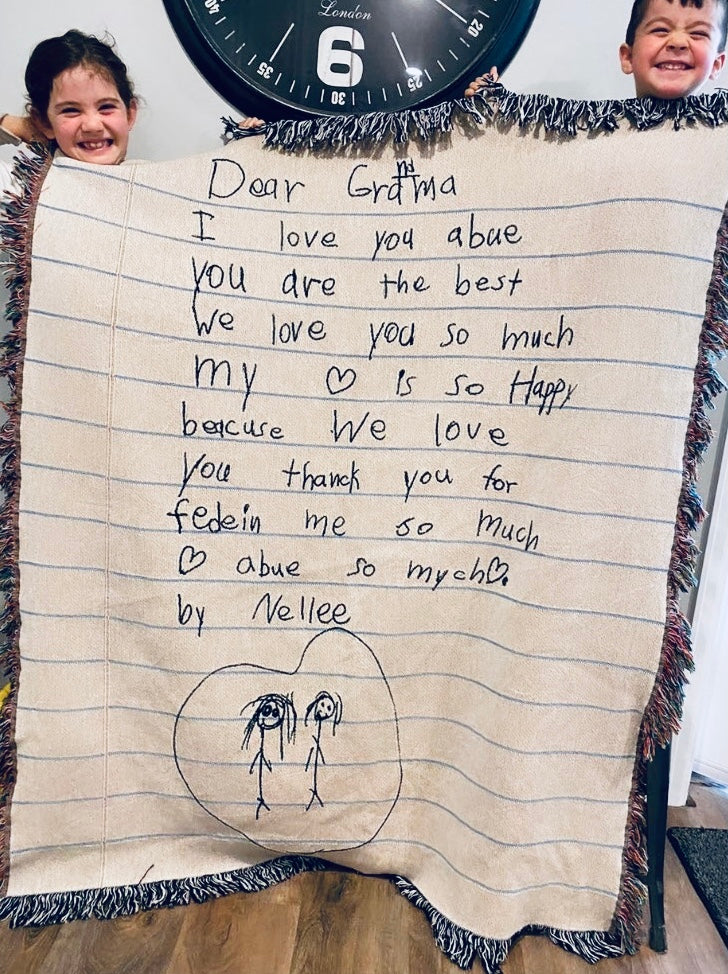 London
40 35 30 25 20
6
Dear Grandma
I love you abue
you are the best
We love you so much
my ♡ is so Happy
beacuse We love
you thanck you for
fedein me so much
♡ abue so mych♡.
by Nellee